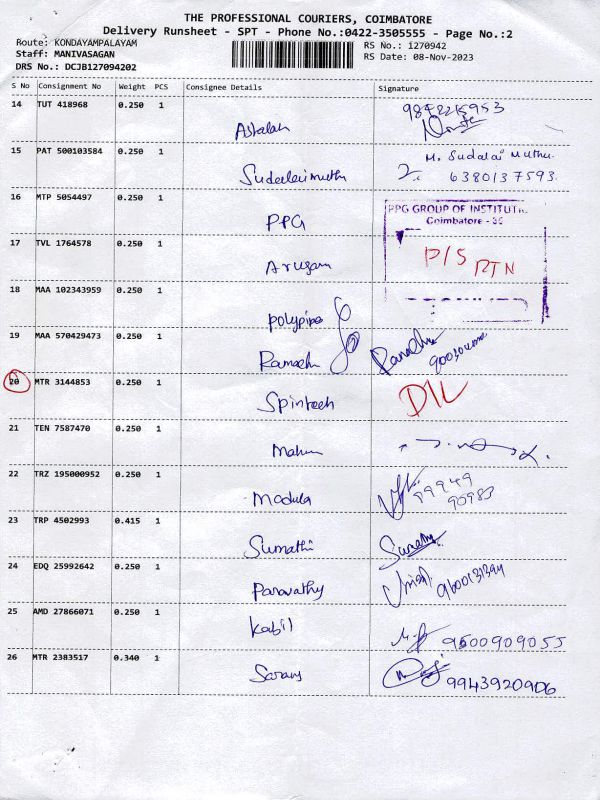 THE PROFESSIONAL COURIERS, COIMBATORE
Delivery Runsheet - SPT - Phone No.:0422-3505555 - Page No.:2
Route: KONDAYAMPALAYAM
Staff: MANIVASAGAN
DRS No.: DCJB127094202
RS No.: 1270942
RS Date: 08-Nov-2023
S No Consignment No Weight PCS Consignee Details Signature
14 TUT 418968 0.250 1
15 PAT 500103584 0.250 1 Sudalaimuthu M. Sudalai Muthu
6380137593
16 MTP 5054497 0.250 1 PPG PPG GROUP OF INSTITUTI
Coimbatore - 35
17 TVL 1764578 0.250 1 Arugam P/S RTN
18 MAA 102343959 0.250 1 Polypipe
19 MAA 570429473 0.250 1 Ramesh
20 MTR 3144853 0.250 1 Spintech D/L
21 TEN 7587470 0.250 1
22 TRZ 195000952 0.250 1 Modula 99949
90983
23 TRP 4502993 0.415 1 Sumathi
24 EDQ 25992642 0.250 1 Paravathy
25 AMD 27866071 0.250 1 Kabil 9600909055
26 MTR 2383517 0.340 1 Sarany 9943920906